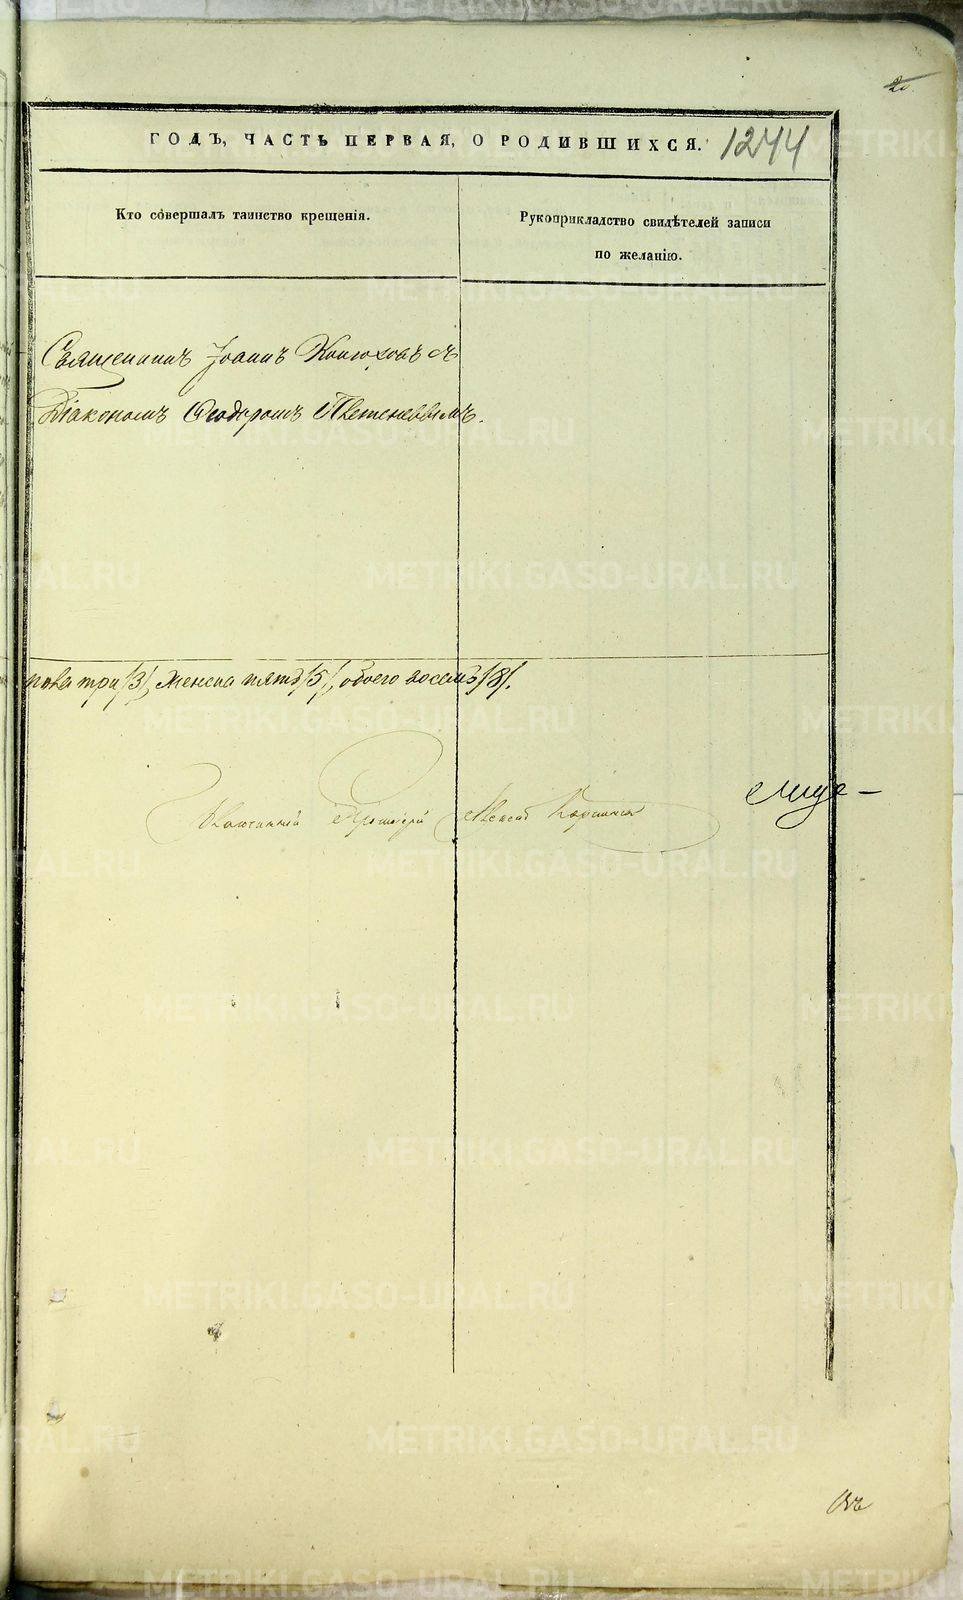 ГОДЪ, ЧАСТЬ ПЕРВАЯ, О РОДИВШИХСЯ. 1244
Кто совершалъ таинство крещенія.
Рукоприкладство свидѣтелей записи
по желанію.
Священникъ Іоаннъ Конюховъ съ
Діакономъ Ѳеодоромъ
пола три /3/, женска пять /5/, обоего восемь /8/.
Протоіерей
METRIKI.GASO-URAL.RU